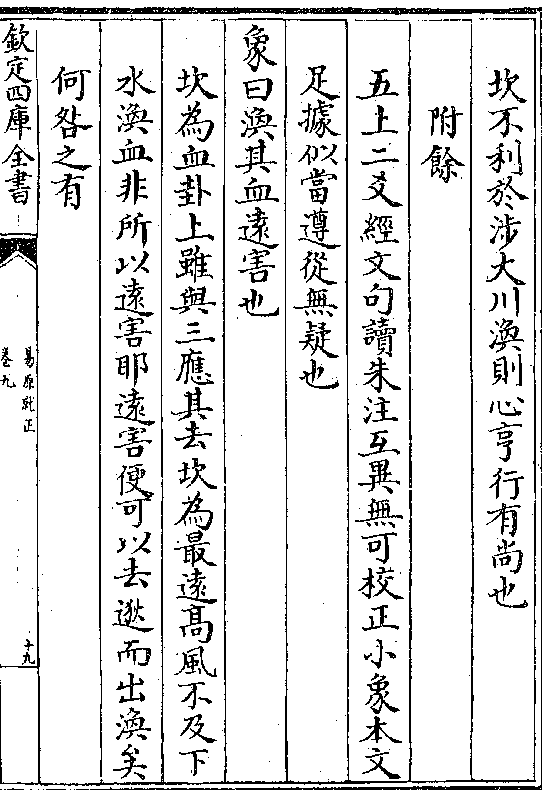 坎不利於涉大川渙則心亨行有尚也
附餘
五上二爻經文句讀朱注互異無可校正小象本文
足據似當遵從無疑也
象曰渙其血遠害也
坎為血卦上雖與三應其去坎為最遠高風不及下
水渙血非所以遠害耶遠害便可以去逖而出渙矣
何咎之有
欽定四庫全書
易原就正
卷九
十九